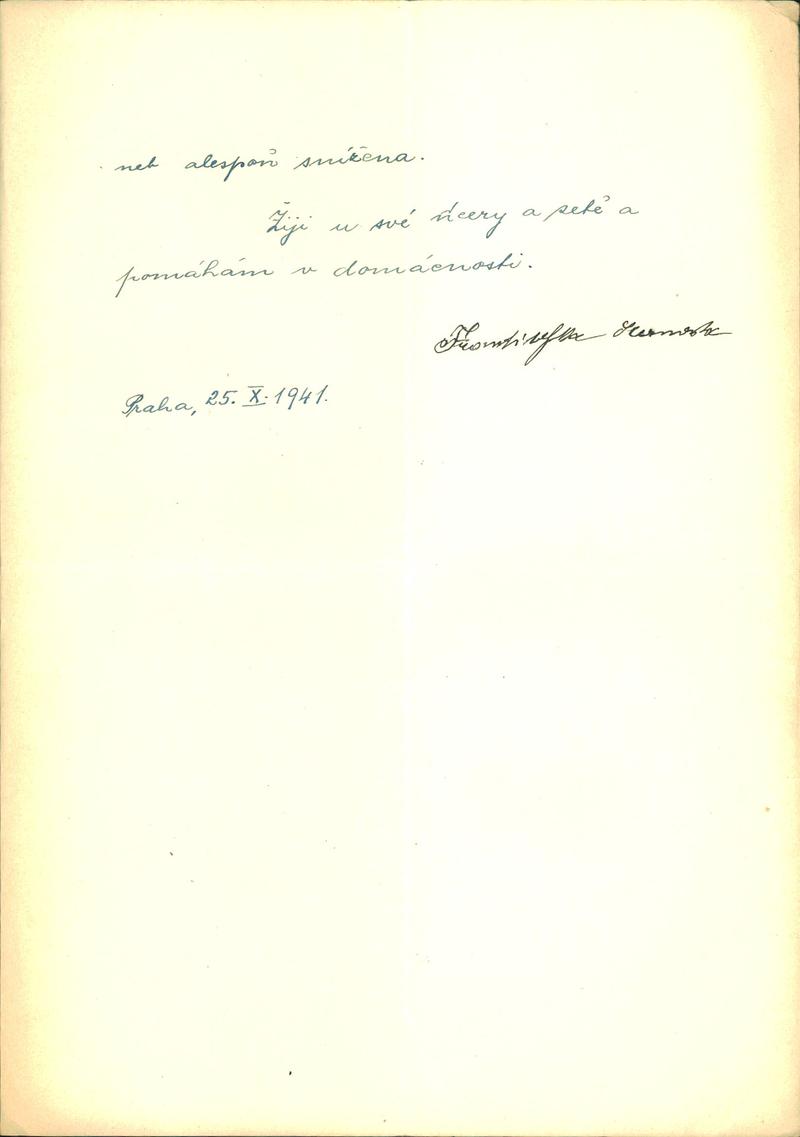 neb alespoň snížena.
Žiji u své dcery a zetě a
pomáhám v domácnosti.
Františka
Praha, 25. X. 1941.